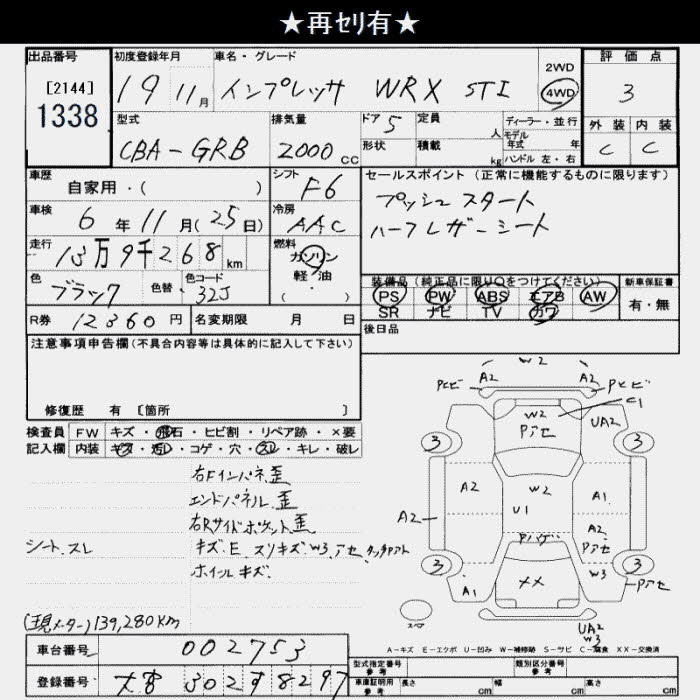 ★再ｾﾘ有★
出品番号
[2144]
1338
初度登録年月
19 11月
車名・グレード
インプレッサ WRX STI
2WD
4WD
評価点
3
外装 内装
C C
型式
CBA-GRB
排気量
2000 CC
ドア
5
形状
定員
人
積載
kg
ディーラー・並行
モデル年式 年
ハンドル 左・右
車歴
自家用・( )
シフト
F6
車検
6年11月(25日)
冷房
AAC
走行
13万9千268km
燃料
ガソリン
軽・油
( ・ )
色
ブラック
色替
色コード
32J
R券 12360円
名変期限 月 日
セールスポイント (正常に機能するものに限ります)
プッシュスタート
ハーフレザーシート
装備品 (純正品に限り○をつけてください)
PS PW ABS エアB AW
SR ナビ TV カワ
新車保証書
有・無
後日品
注意事項申告欄(不具合内容等は具体的に記入して下さい)
修復歴 有 [箇所 ]
検査員記入欄
FW キズ・飛石・ヒビ割・リペア跡・×要
内装 キズ・汚レ・コゲ・穴・スレ・キレ・破レ
右Fインパネ.歪
エンドパネル.歪
右Rサイドポケット.歪
シート.スレ
キズ.E スリキズ.W3.アセ.タッチアト
ホイルキズ.
(現メーター) 139,280km
車台番号 002753
登録番号 大宮 302 す 8297
W2
A2 A2
C1
W2
UA2
3 3
A2
W2
A1
U1
A2
A2
3 3
XX
W3
A1
UA2
W3
A-キズ E-エクボ U-凹み W-補修跡 S-サビ C-腐食 XX-交換済
型式指定番号
参考
類別区分番号
参考
車庫証明用
参考
長さ cm
幅 cm
高さ cm